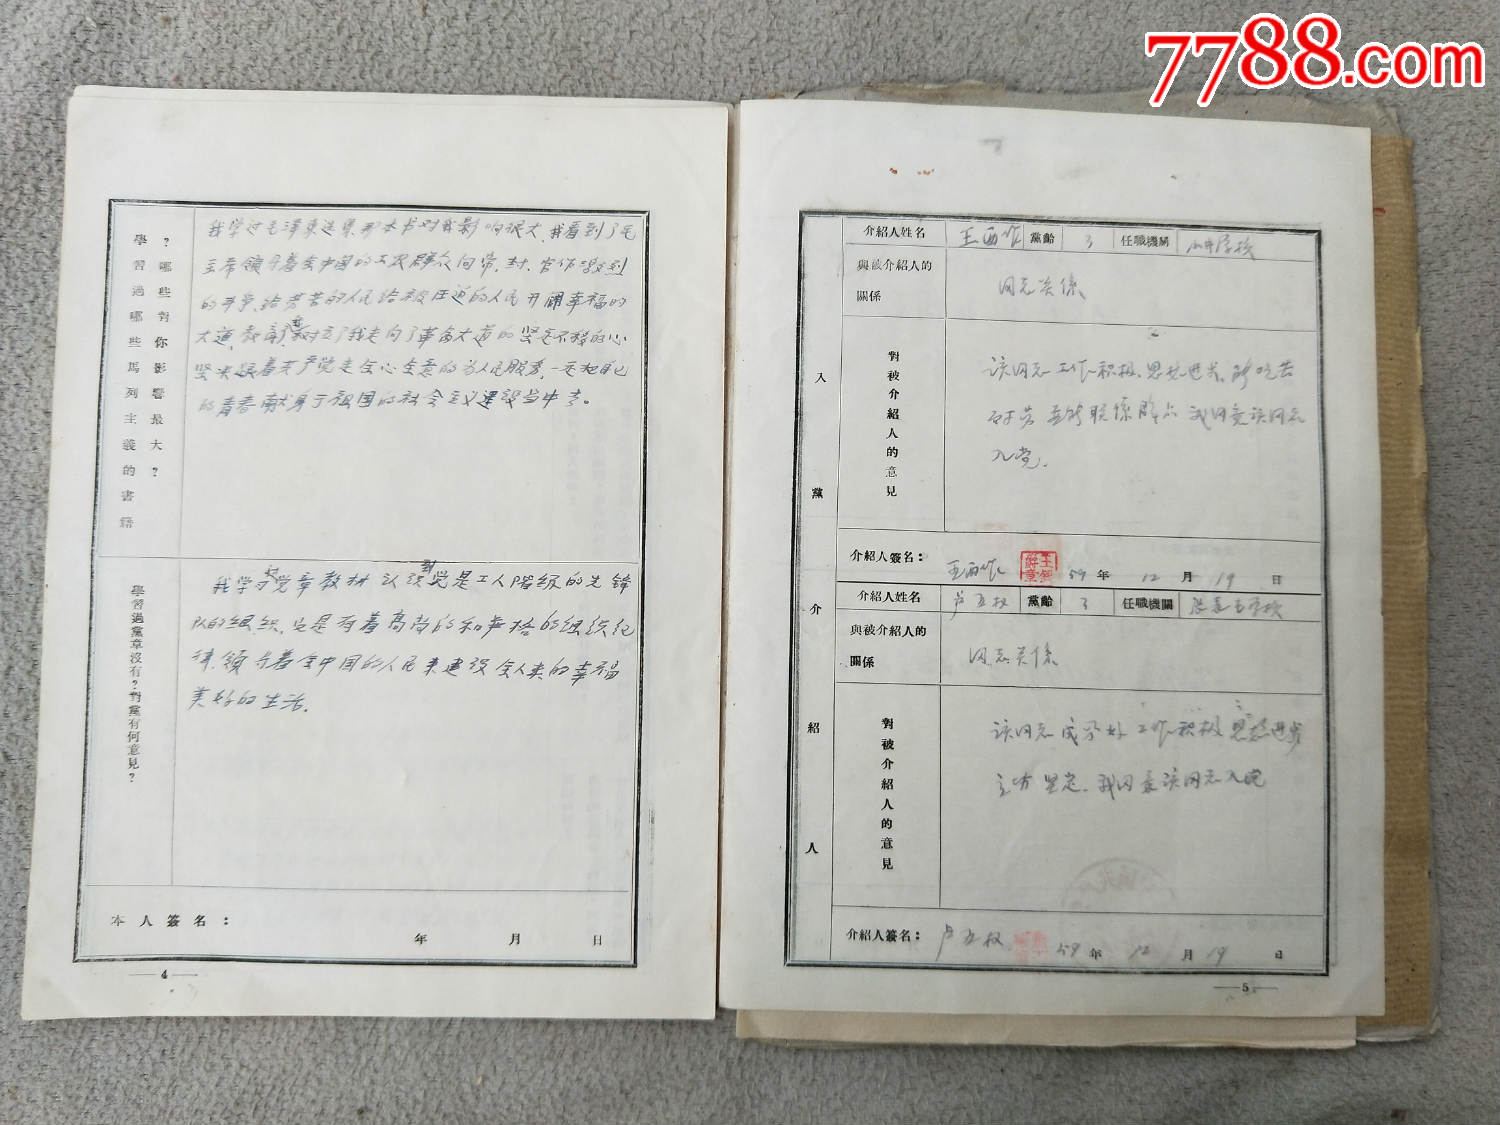 7788.com
學習過哪些馬列主義的書籍
?哪些對你影響最大?
我学过毛泽东选集那本书对我影响很大,我看到了毛
主席领导着全中国的工农群众向帝、封、官作激烈
的斗争、给劳苦的人民给被压迫的人民开闢幸福的
大道,教育 我走向了革命大道的坚定不移的心
坚决跟着共产党走全心全意的为人民服务,一定把自己
的青春献身于祖国的社会主义建设当中去。
學習過黨章沒有?對黨有何意見?
我学习党章教材 认识对党是工人阶级的先锋
队的组织,它是有着高尚的和严格的组织纪
律,领导着全中国的人民来建设全人类的幸福
美好的生活.
本人簽名:
年 月 日
4
入黨介紹人
介紹人姓名 王西作 黨齡 3 任職機關 学校
與被介紹人的關係
同志关係
對被介紹人的意見
该同志工作积极、思想进步,能吃苦
耐劳 联係群众 我同意该同志
入党.
介紹人簽名: 王西作 59年 12月 19日
介紹人姓名 卢五权 黨齡 3 任職機關 学校
與被介紹人的關係
同志关係
對被介紹人的意見
该同志成份好 工作积极 思想进步
立场坚定.我同意该同志入党
介紹人簽名: 卢五权. 59年 12月 19日
5